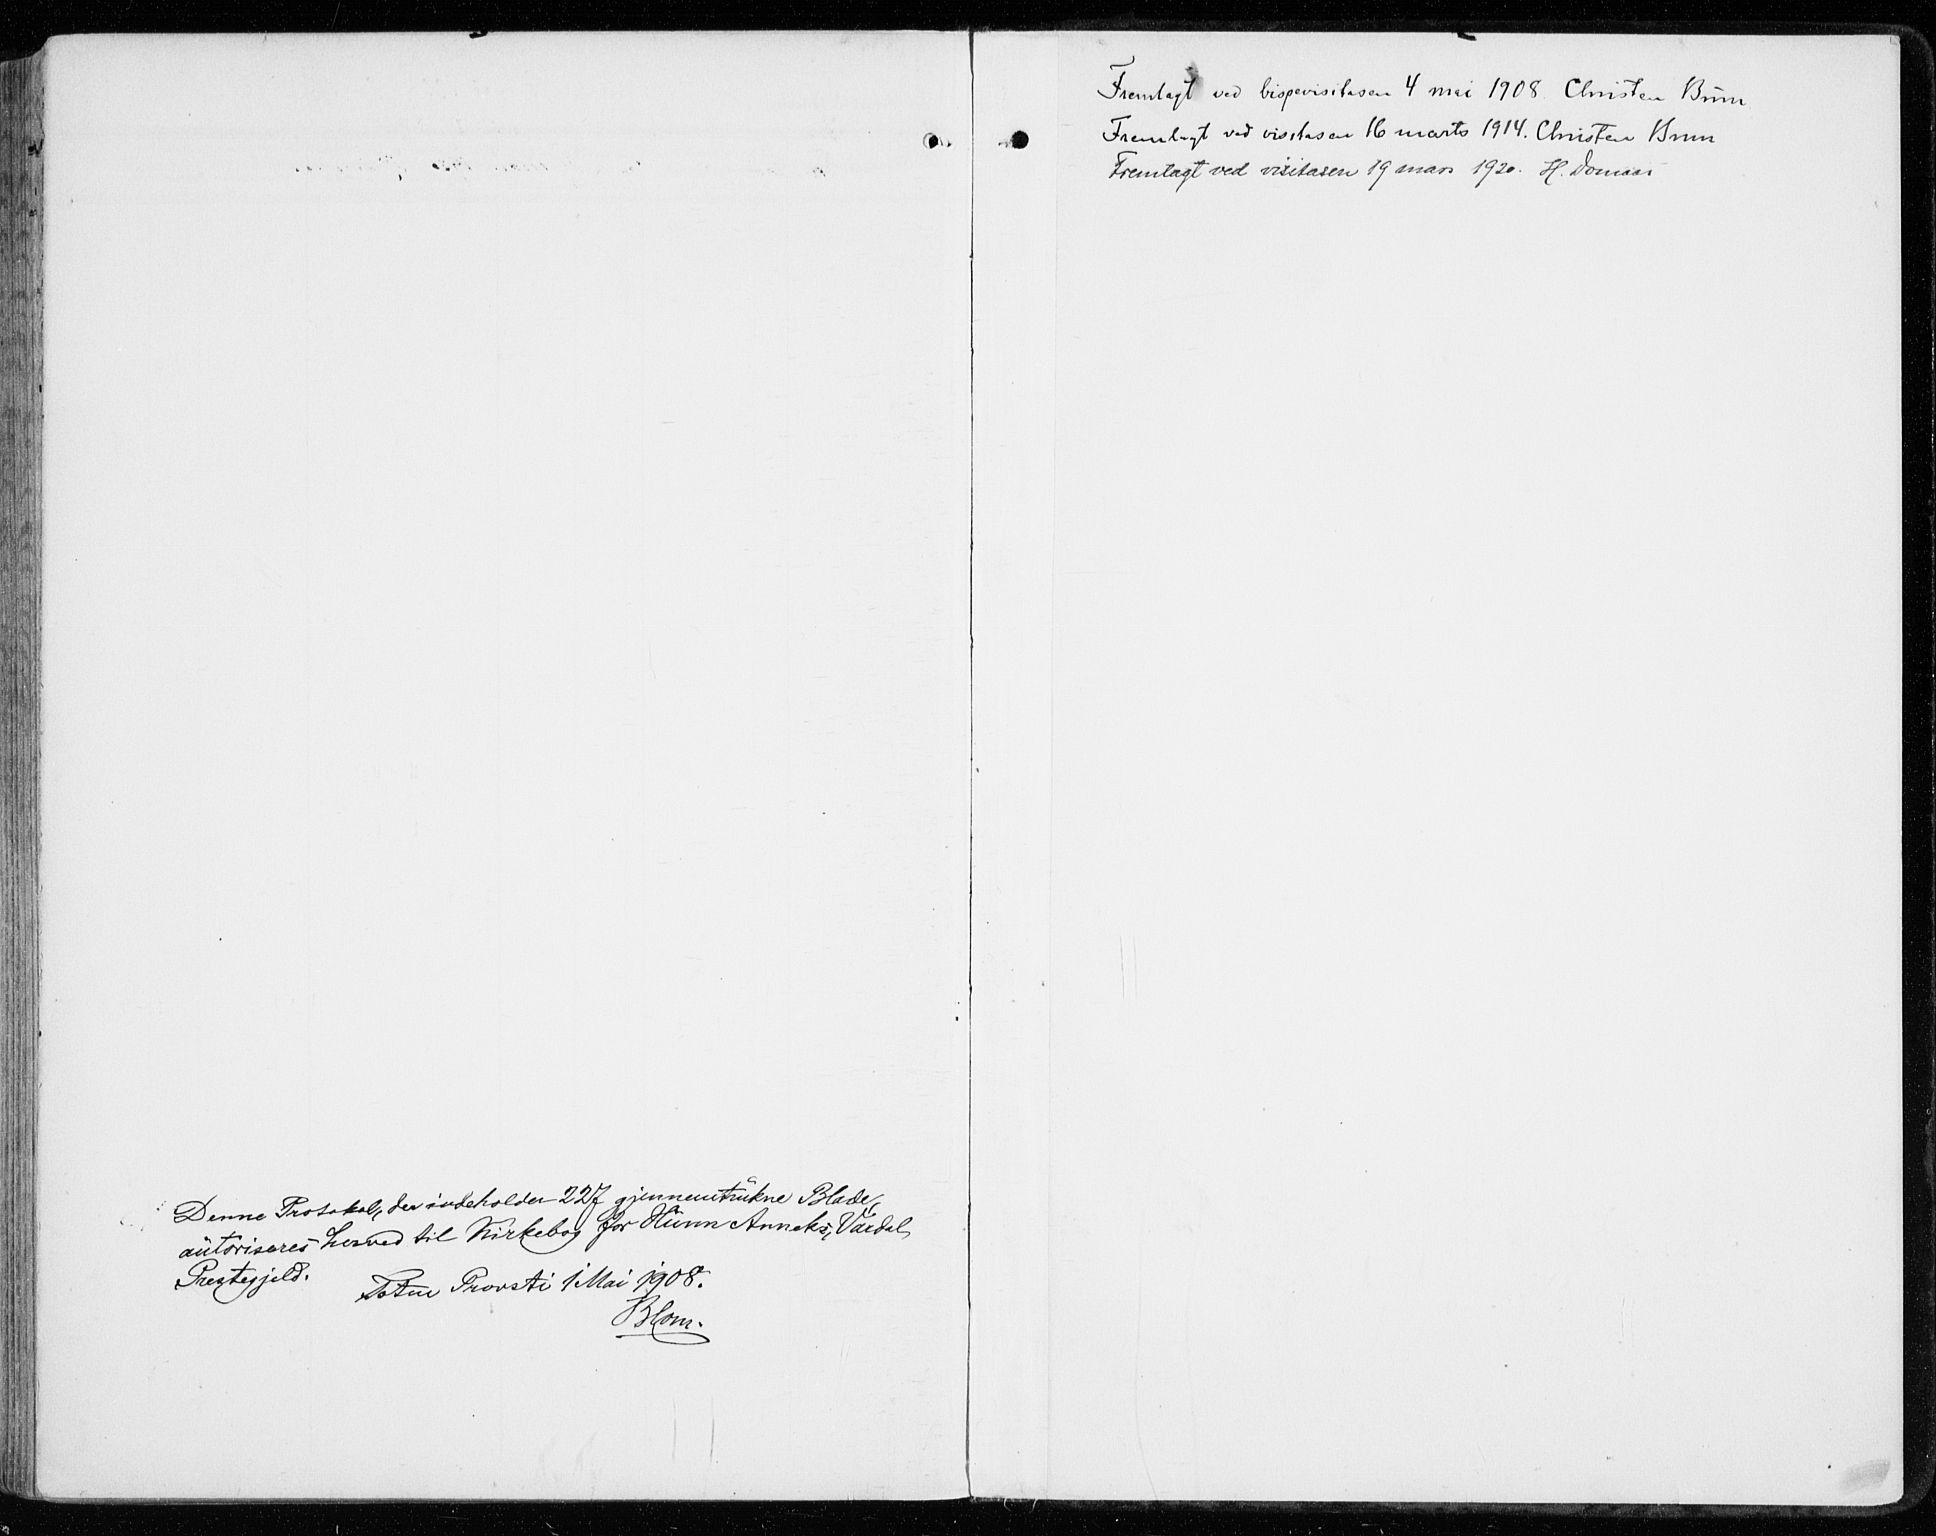 Denne Protokol, der indeholder 227 gjennemtrukne Blade,
autoriseres herved til Kirkebog for Hunn Anneks, Vardal
Prestegjeld.
Toten Provsti 1 Mai 1908.
Blom.
Fremlagt ved bispevisitasen 4 mai 1908. Christen Brun
Fremlagt ved visitasen 16 marts 1914. Christen Brun
Fremlagt ved visitasen 19 mars 1920. H. Domaas